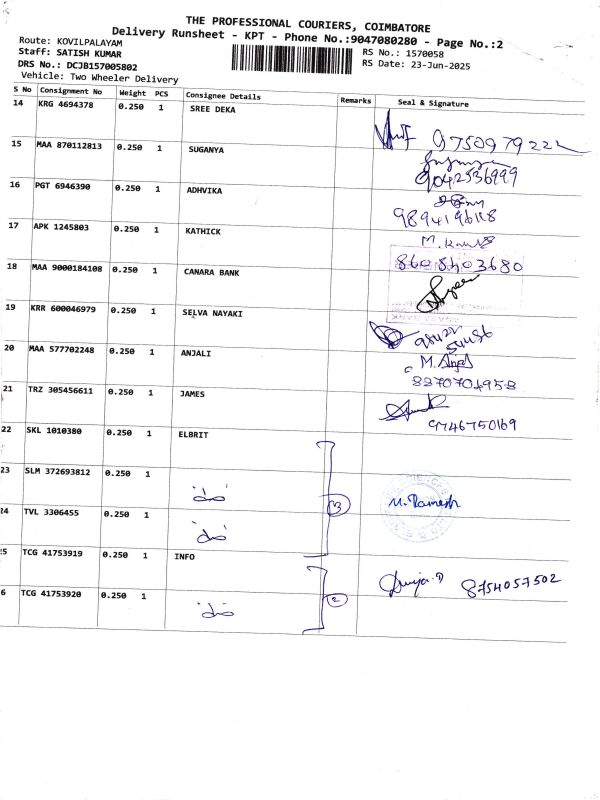 THE PROFESSIONAL COURIERS, COIMBATORE
Delivery Runsheet - KPT - Phone No.:9047080280 - Page No.:2
Route: KOVILPALAYAM
RS No.: 1570058
Staff: SATISH KUMAR
RS Date: 23-Jun-2025
DRS No.: DCJB157005802
Vehicle: Two Wheeler Delivery
S No Consignment No Weight PCS Consignee Details Remarks Seal & Signature
14 KRG 4694378 0.250 1 SREE DEKA
9750979222
15 MAA 870112813 0.250 1 SUGANYA
9042536999
16 PGT 6946390 0.250 1 ADHVIKA
17 APK 1245803 0.250 1 KATHICK
8608403680
18 MAA 9000184108 0.250 1 CANARA BANK
19 KRR 600046979 0.250 1 SELVA NAYAKI
20 MAA 577702248 0.250 1 ANJALI
M. Anjali
8870704958
21 TRZ 305456611 0.250 1 JAMES
9746750169
22 SKL 1010380 0.250 1 ELBRIT
23 SLM 372693812 0.250 1
3
M. Ramesh
24 TVL 3306455 0.250 1
5 TCG 41753919 0.250 1 INFO
8754057502
6 TCG 41753920 0.250 1
2